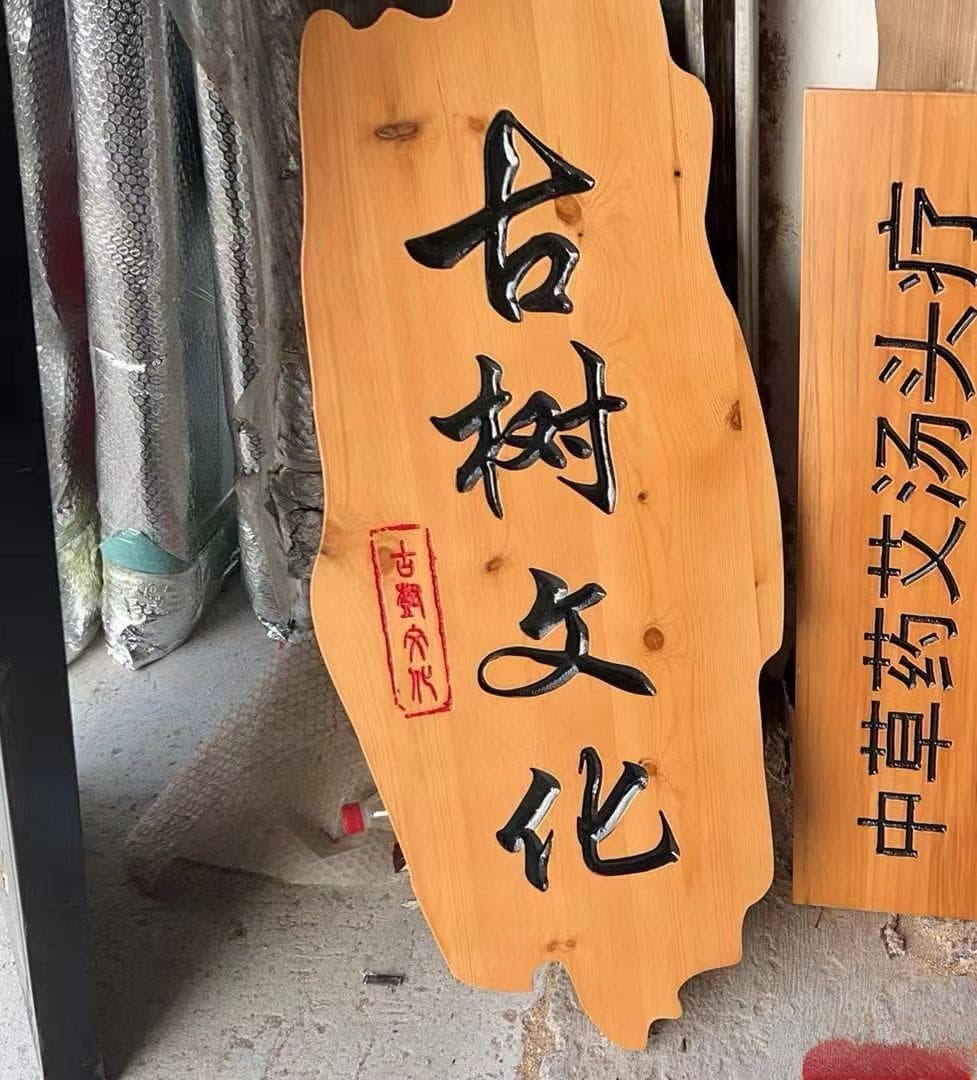 古树文化
古树文化
中草药艾汤头疗